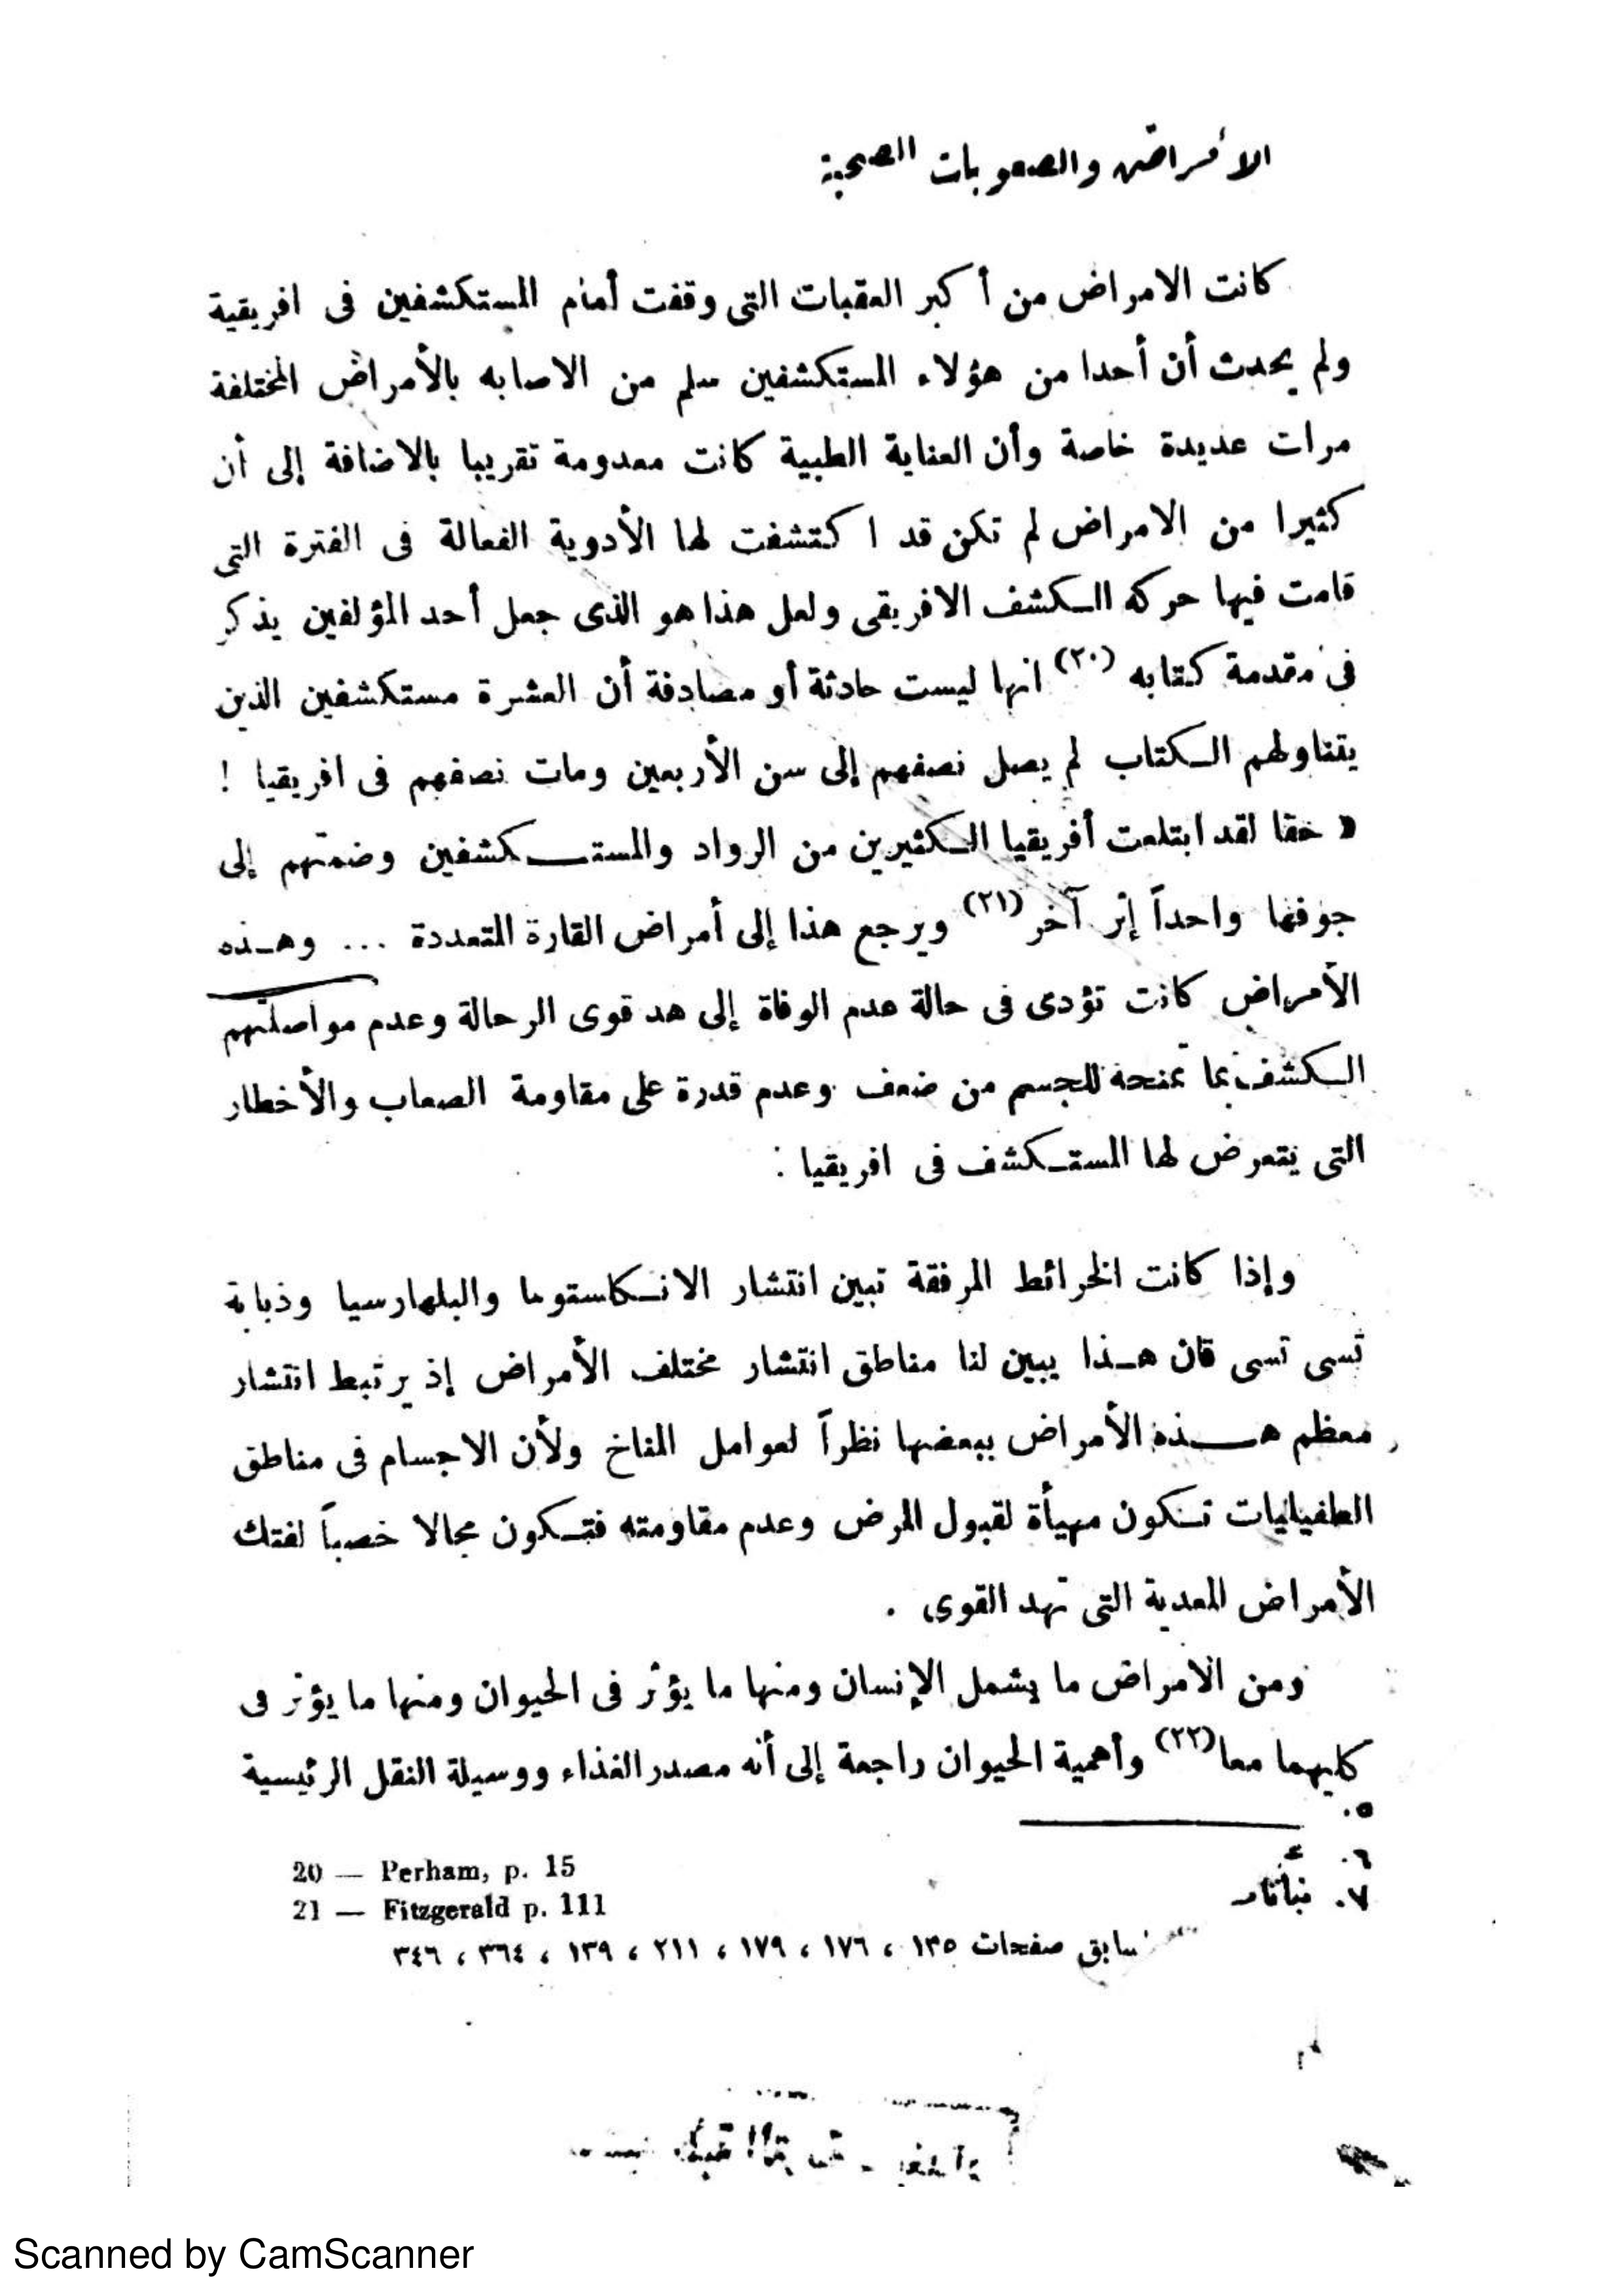 الأمراض والصعوبات الصحية
كانت الامراض من أكبر العقبات التى وقفت أمام المستكشفين فى افريقية
ولم يحدث أن أحدا من هؤلاء المستكشفين سلم من الاصابه بالأمراض المختلفة
مرات عديدة خاصة وأن العناية الطبية كانت معدومة تقريبا بالاضافة إلى أن
كثيرا من الامراض لم تكن قد اكتشفت لها الأدوية الفعالة فى الفترة التى
قامت فيها حركه الكشف الافريقى ولعل هذا هو الذى جعل أحد المؤلفين يذكر
فى مقدمة كتابه (٢٠) انها ليست حادثة أو مصادفة أن العشرة مستكشفين الذين
يتناولهم الكتاب لم يصل نصفهم إلى سن الأربعين ومات نصفهم فى افريقيا !
« حقا لقد ابتلعت أفريقيا الكثيرين من الرواد والمستكشفين وضمتهم إلى
جوفها واحداً إثر آخر (٢١) ويرجع هذا إلى أمراض القارة المتعددة ... وهذه
الأمراض كانت تؤدى فى حالة عدم الوفاة إلى هد قوى الرحالة وعدم مواصلتهم
الكشف بما تمنحه للجسم من ضعف وعدم قدرة على مقاومة الصعاب والأخطار
التى يتعرض لها المستكشف فى افريقيا :
وإذا كانت الخرائط المرفقة تبين انتشار الانكاستوما والبلهارسيا وذبابة
تسى تسى فان هذا يبين لنا مناطق انتشار مختلف الأمراض إذ يرتبط انتشار
معظم هذه الأمراض ببعضها نظراً لعوامل المناخ ولأن الاجسام فى مناطق
الطفيليات تكون مهيأة لقبول المرض وعدم مقاومته فتكون مجالا خصباً لفتك
الأمراض المعدية التى تهد القوى .
ومن الامراض ما يشمل الإنسان ومنها ما يؤثر فى الحيوان ومنها ما يؤثر فى
كليهما معا (٢٢) وأهمية الحيوان راجعة إلى أنه مصدر الغذاء ووسيلة النقل الرئيسية
20 — Perham, p. 15
21 — Fitzgerald p. 111
سابق صفحات ١٣٥ ، ١٧٦ ، ١٧٩ ، ٢١١ ، ١٣٩ ، ٣٦٤ ، ٣٤٦
Scanned by CamScanner